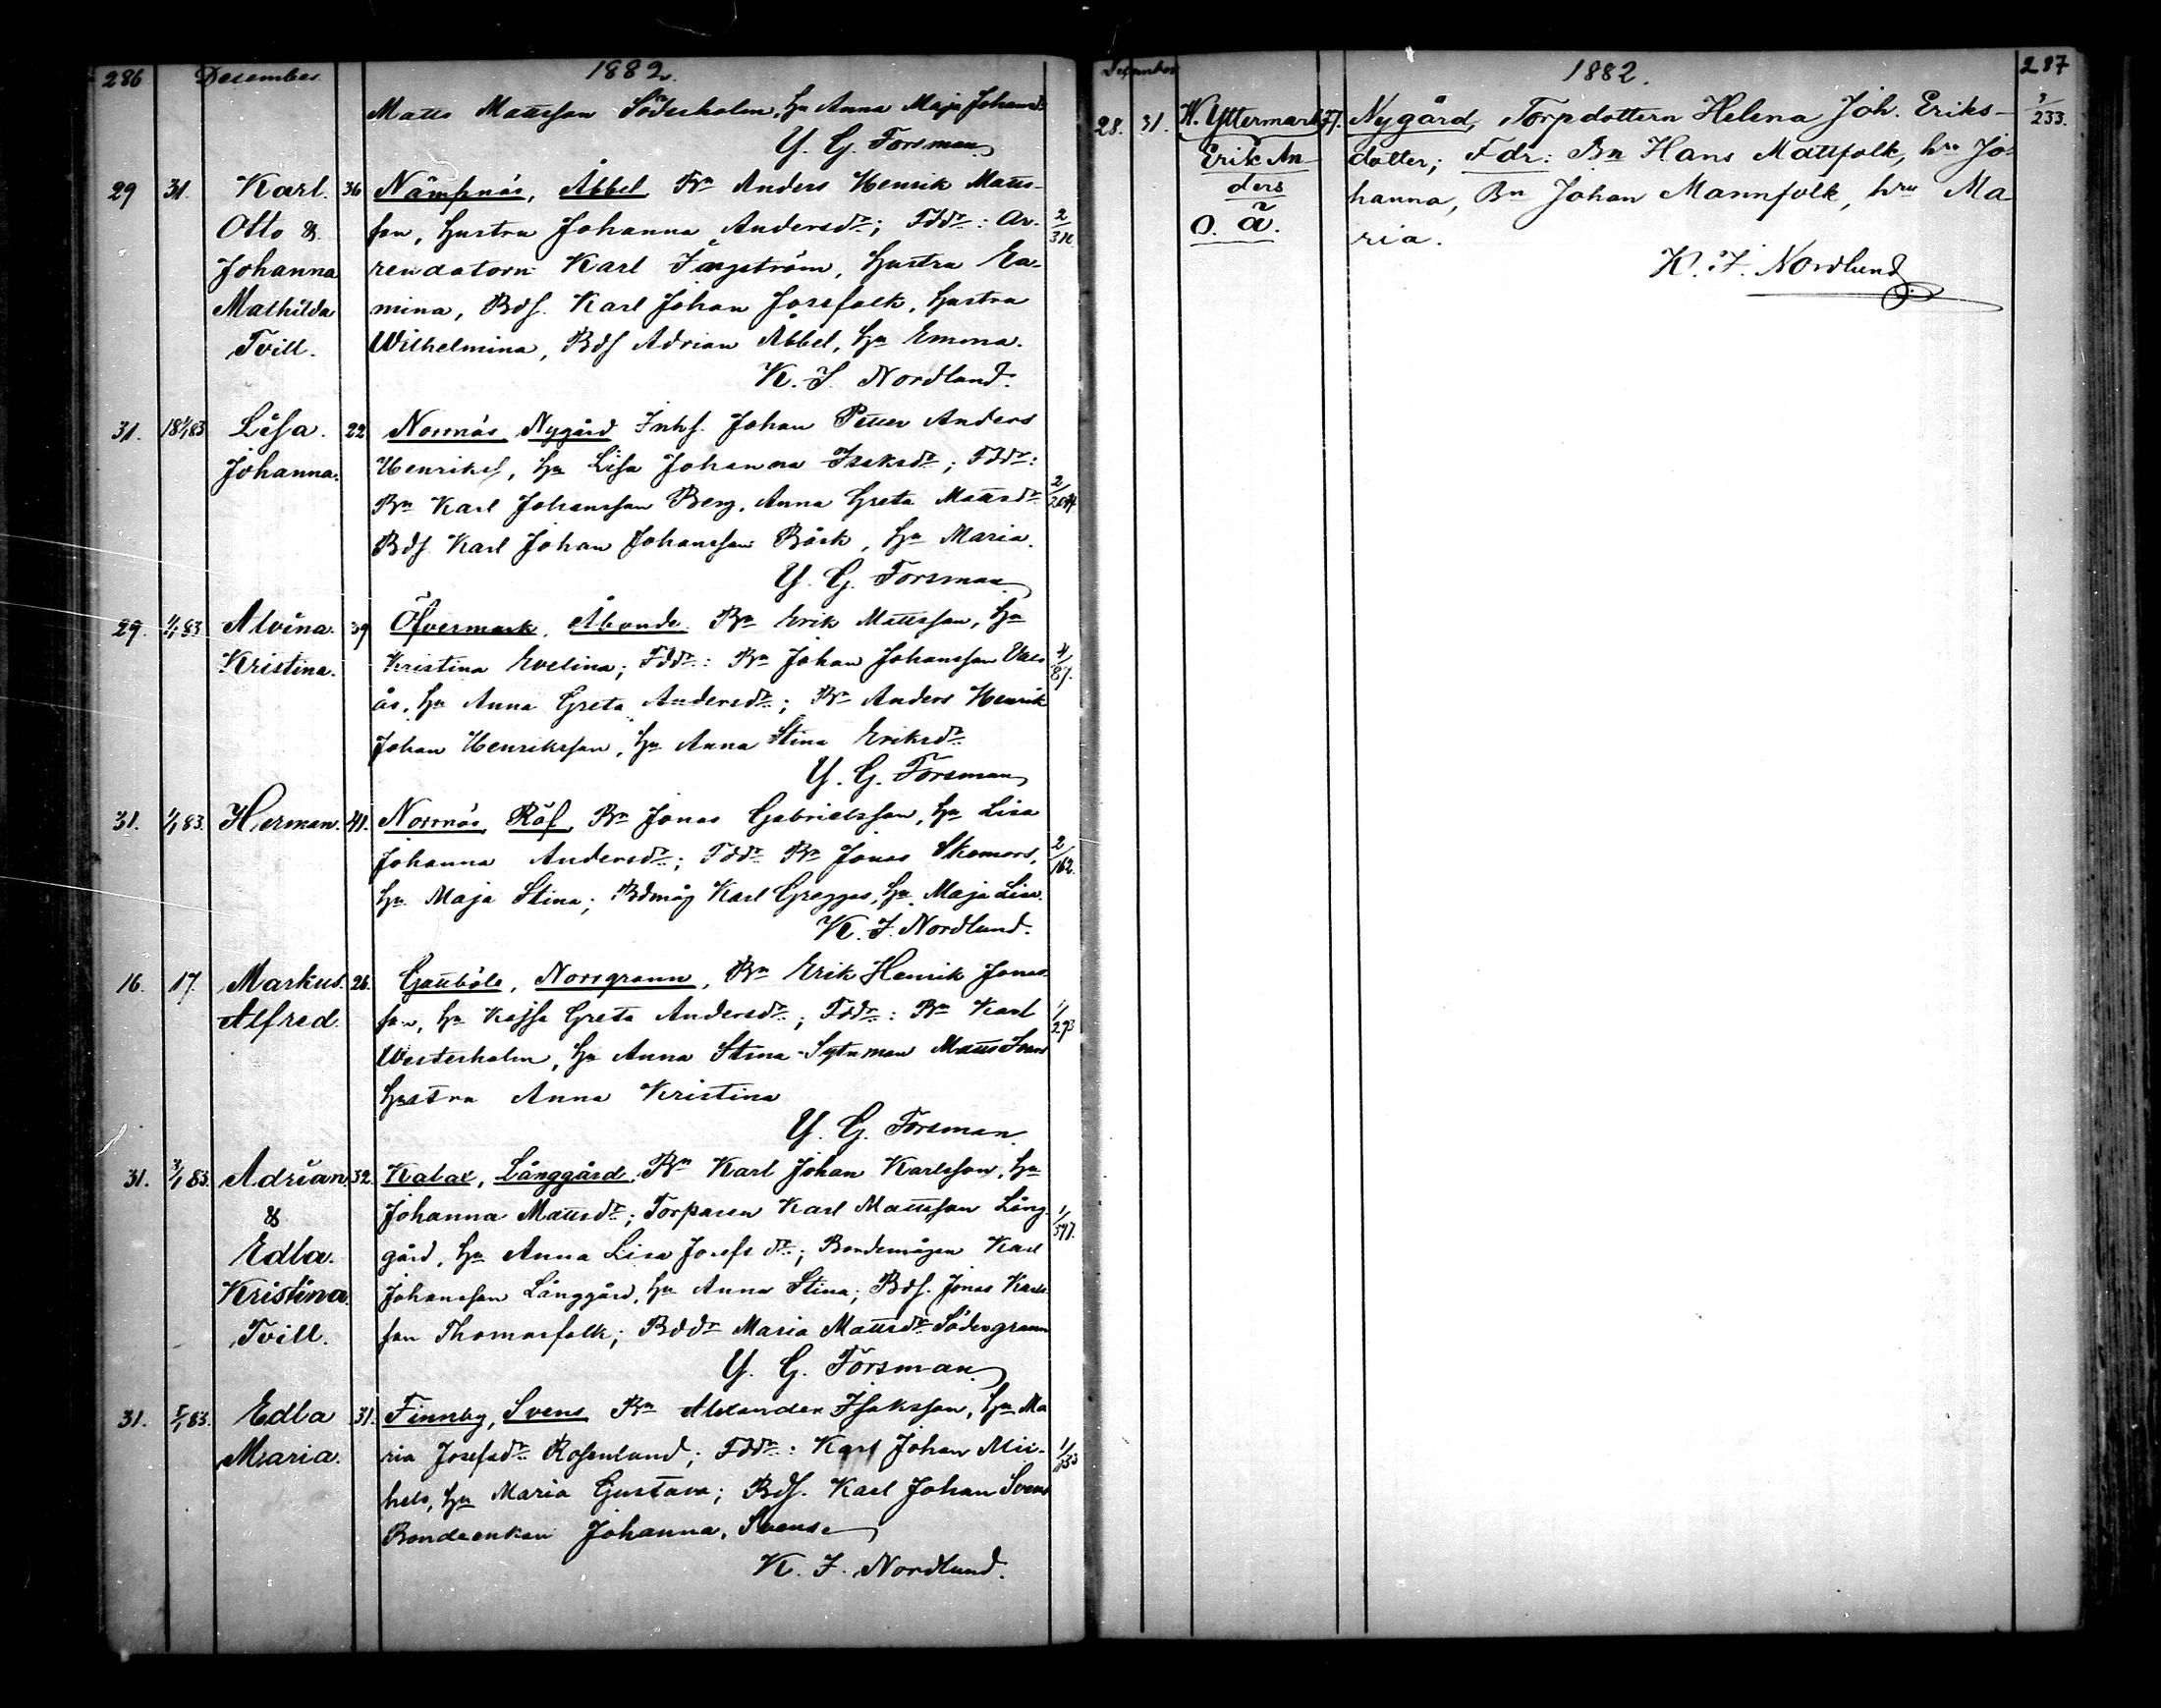 286 Desember 1882.
Matts Mattsson Söderholm, Hu Anna Maja Johansdr
Y. G. Forsman
29 31. Karl. 36 Nämpnäs, Åbbel Bn Anders Henrik Matts-
Otto & son, hustru Johanna Andersdr; Fddr: Ar- 2/310
Johanna rendatorn Karl Ingström, hustru
Mathilda mina, Bds. Karl Johan Josefolk, hustru
Tvill. Wilhelmina, Bds Adrian Åbbel, Hu Emma.
K. F. Nordlund.
31. 18/1 83 Lisa. 22 Norrnäs, Nygård Inhs. Johan Petter Anders
Johanna. Henriks, Hu Lisa Johanna Isaksdr; Fddr:
Bn Karl Johansson Berg, Anna Greta Mattsdr
Bds. Karl Johan Johansson Bäck, Hu Maria.
Y. G. Forsman
29. 1/1 83 Alvina. 39 Öfvermark, Åbonde Bn Erik Mattsson, Hu
Kristina. Kristina Evelina; Fddr: Bn Johan Johansson 4/87.
ås, Hu Anna Greta Andersdr; Bn Anders Henrik
Johan Henriksson, Hu Anna Stina Eriksdr
Y. G. Forsman
31. 1/1 83. Herman. 41. Norrnäs, Räf, Bn Jonas Gabrielsson, Hu Lisa
Johanna Andersdr; Fddr Bn Jonas Skomars, 2/162.
Hu Maja Stina; Bdmåg Karl Greggas, Hu Maja Lisa.
K. F. Nordlund.
16. 17. Markus. 26. Gottböle, Norrgrann, Bn Erik Henrik Jonas-
Alfred. son, Hu Kajsa Greta Andersdr; Fddr: Bn Karl 1/293
Westerholm, Hu Anna Stina - Sytnman Matts
hustru Anna Kristina
Y. G. Forsman.
31. 3/1 83. Adrian 32. Kalax, Långgård, Bn Karl Johan Karlsson, Hu
& Johanna Mattsdr; Torparen Karl Mattsson Lång- 1/397.
Edla. gård, Hu Anna Lisa Josefsdr; Bondemågen Karl
Kristina. Johansson Långgård, Hu Anna Stina; Bds. Jonas Karls-
Tvill. son Thomasfolk; Bddr Maria Mattsdr Södergrann
Y. G. Forsman
31. 5/1 83. Edla 31. Finnby, Svens Bn Alexander Isaksson, Hu Ma
Maria. ria Josefsdr Rosenlund; Fddr: Karl Johan Mic- 1/133
hels, Hu Maria Gustava; Bds. Karl Johan Svens
Bondeenkan Johanna, Svens.
K. F. Nordlund.
December 1882. 287
28. 31. W. Yttermark 27. Nygård, Torpdottern Helena Joh. Eriks- 3/233.
Erik An- dotter; Fdr: Bn Hans Mattfolk, hru Jo-
ders hanna, Bn Johan Mannfolk, hru Ma-
o. ä. ria.
K. F. Nordlund